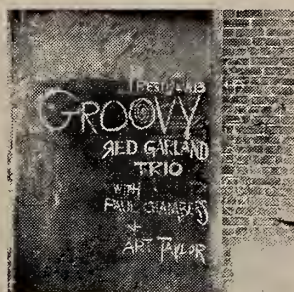 GROOVY
RED GARLAND
TRIO
WITH
PAUL CHAMBERS
+
ART TAYLOR